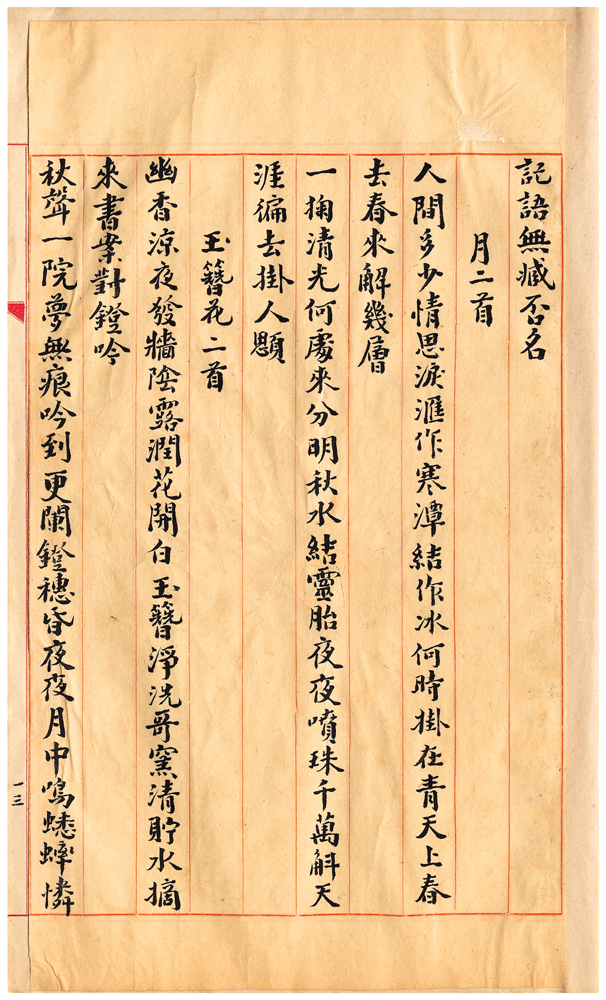 託語無臧否名
月二首
人間多少情思淚滙作寒潭結作冰何時掛在青天上春
去春來解幾層
一掬清光何處來分明秋水結靈胎夜夜噴珠千萬斛天
涯徧去掛人顋
玉簪花二首
幽香涼夜發牆陰露潤花開白玉簪淨洗哥窯清貯水摘
來書案對鐙吟
秋聲一院夢無痕吟到更闌鐙穗昏夜夜月中鳴蟋蟀憐
一三